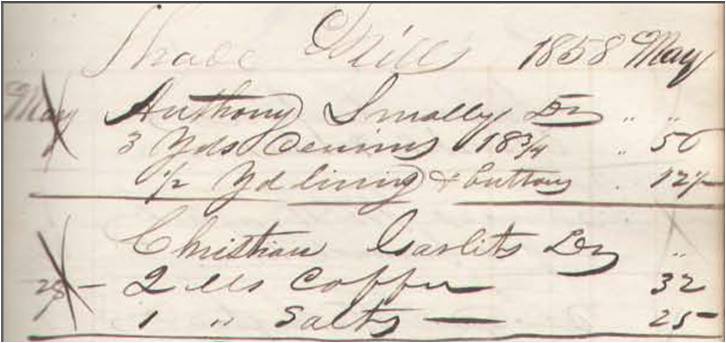 Shade Mills 1858 May
May Anthony Smally Dr " "
1 3 Yds Denims 18 3/4 " 56
1/2 Yd lining & buttons . 12 1/2
Christian Garlits Dr "
28 – 2 lbs Coffee 32
1 " Salts — 25